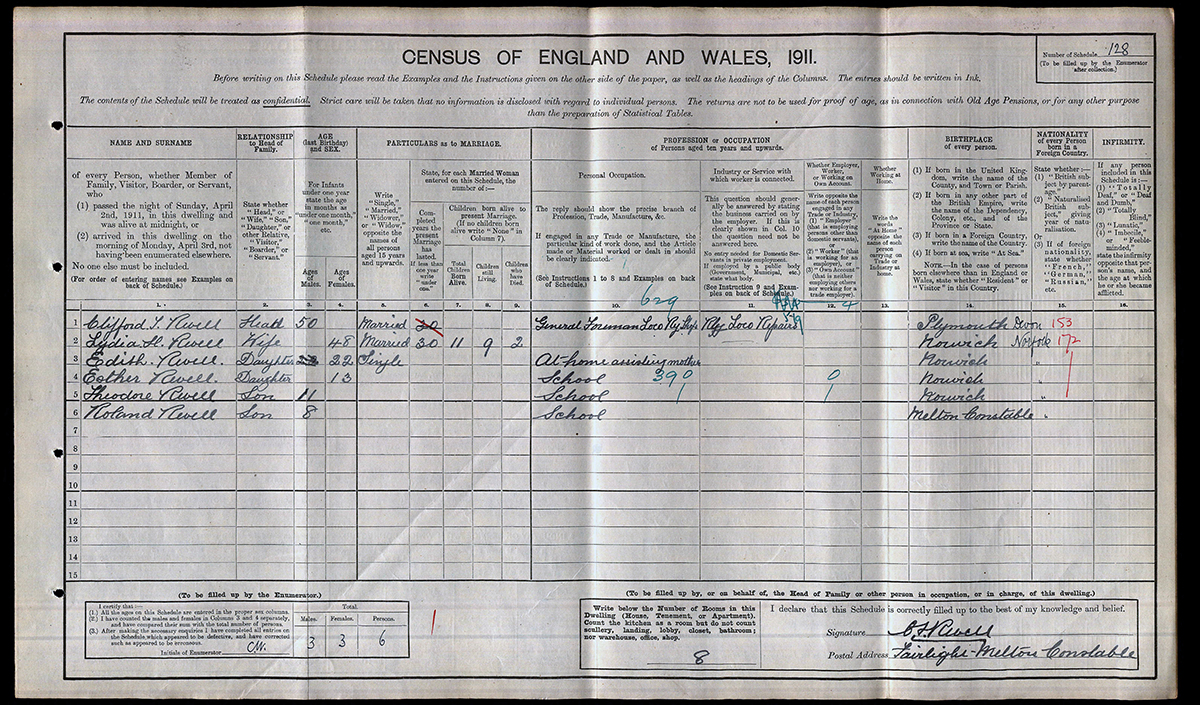 CENSUS OF ENGLAND AND WALES, 1911.
Number of Schedule 128
(To be filled up by the Enumerator
after collection.)
Before writing on this Schedule please read the Examples and the Instructions given on the other side of the paper, as well as the headings of the Columns. The entries should be written in Ink.
The contents of the Schedule will be treated as confidential. Strict care will be taken that no information is disclosed with regard to individual persons. The returns are not to be used for proof of age, as in connection with Old Age Pensions, or for any other purpose
than the preparation of Statistical Tables.
NAME AND SURNAME
of every Person, whether Member of
Family, Visitor, Boarder, or Servant,
who
(1) passed the night of Sunday, April
2nd, 1911, in this dwelling and
was alive at midnight, or
(2) arrived in this dwelling on the
morning of Monday, April 3rd, not
having been enumerated elsewhere.
No one else must be included.
(For order of entering names see Examples on
back of Schedule.)
1.
RELATIONSHIP
to Head of
Family.
State whether
"Head," or
"Wife," "Son,"
"Daughter," or
other Relative,
"Visitor,"
"Boarder," or
"Servant."
2.
AGE
(last Birthday)
and SEX.
For Infants
under one year
state the age
in months as
"under one month,"
"one month,"
etc.
Ages
of
Males.
3.
Ages
of
Females.
4.
PARTICULARS as to MARRIAGE.
Write
"Single,"
"Married,"
"Widower,"
or "Widow,"
opposite the
names of
all persons
aged 15 years
and upwards.
5.
State, for each Married Woman
entered on this Schedule, the
number of:—
Com-
pleted
years the
present
Marriage
has
lasted.
If less than
one year
write
"under
one."
6.
Children born alive to
present Marriage.
(If no children born
alive write "None" in
Column 7).
Total
Children
Born
Alive.
7.
Children
still
Living.
8.
Children
who
have
Died.
9.
PROFESSION or OCCUPATION
of Persons aged ten years and upwards.
Personal Occupation.
The reply should show the precise branch of
Profession, Trade, Manufacture, &c.
If engaged in any Trade or Manufacture, the
particular kind of work done, and the Article
made or Material worked or dealt in should
be clearly indicated.
(See Instructions 1 to 8 and Examples on back
of Schedule.)
10.
629
Industry or Service with
which worker is connected.
This question should gener-
ally be answered by stating
the business carried on by
the employer. If this is
clearly shown in Col. 10
the question need not be
answered here.
No entry needed for Domestic Ser-
vants in private employment.
If employed by a public body
(Government, Municipal, etc.)
state what body.
(See Instruction 9 and Exam-
ples on back of Schedule.)
11.
Whether Employer,
Worker,
or Working on
Own Account.
Write opposite the
name of each person
engaged in any
Trade or Industry,
(1) "Employer"
(that is employing
persons other than
domestic servants),
or
(2) "Worker" (that
is working for an
employer), or
(3) "Own Account"
(that is neither
employing others
nor working for a
trade employer).
12.
4
Whether
Working at
Home.
Write the
words
"At Home"
opposite the
name of each
person
carrying on
Trade or
Industry at
Home.
13.
BIRTHPLACE
of every person.
(1) If born in the United King-
dom, write the name of the
County, and Town or Parish.
(2) If born in any other part of
the British Empire, write
the name of the Dependency,
Colony, etc., and of the
Province or State.
(3) If born in a Foreign Country,
write the name of the Country.
(4) If born at sea, write "At Sea."
NOTE.—In the case of persons
born elsewhere than in England or
Wales, state whether "Resident" or
"Visitor" in this Country.
14.
NATIONALITY
of every Person
born in a
Foreign Country.
State whether:—
(1) "British sub-
ject by parent-
age."
(2) "Naturalised
British sub-
ject," giving
year of natu-
ralisation.
Or
(3) If of foreign
nationality,
state whether
"French,"
"German,"
"Russian,"
etc.
15.
INFIRMITY.
If any person
included in this
Schedule is:—
(1) "Totally
Deaf," or "Deaf
and Dumb,"
(2) "Totally
Blind,"
(3) "Lunatic,"
(4) "Imbecile,"
or "Feeble-
minded,"
state the infirmity
opposite that per-
son's name, and
the age at which
he or she became
afflicted.
16.
1 Clifford J. Revell Head 50 Married 30 General Foreman Loco Ry Shops Rly Loco Repairs Plymouth Devon 153
2 Lydia H. Revell Wife 48 Married 30 11 9 2 Norwich Norfolk 172
3 Edith. Revell Daughter 22 Single At home assisting mother Norwich "
4 Esther Revell. Daughter 13 School 390 0 Norwich "
5 Theodore Revell Son 11 School 1 1 Norwich "
6 Roland Revell Son 8 School Melton Constable "
7
8
9
10
11
12
13
14
15
(To be filled up by the Enumerator.)
I certify that:—
(1.) All the ages on this Schedule are entered in the proper sex columns.
(2.) I have counted the males and females in Columns 3 and 4 separately,
and have compared their sum with the total number of persons.
(3.) After making the necessary enquiries I have completed all entries on
the Schedule which appeared to be defective, and have corrected
such as appeared to be erroneous.
Initials of Enumerator CW.
Total.
Males. Females. Persons.
3 3 6
(To be filled up by, or on behalf of, the Head of Family or other person in occupation, or in charge, of this dwelling.)
Write below the Number of Rooms in this
Dwelling (House, Tenement, or Apartment).
Count the kitchen as a room but do not count
scullery, landing, lobby, closet, bathroom;
nor warehouse, office, shop.
8
I declare that this Schedule is correctly filled up to the best of my knowledge and belief.
Signature C J Revell
Postal Address Fairlight Melton Constable